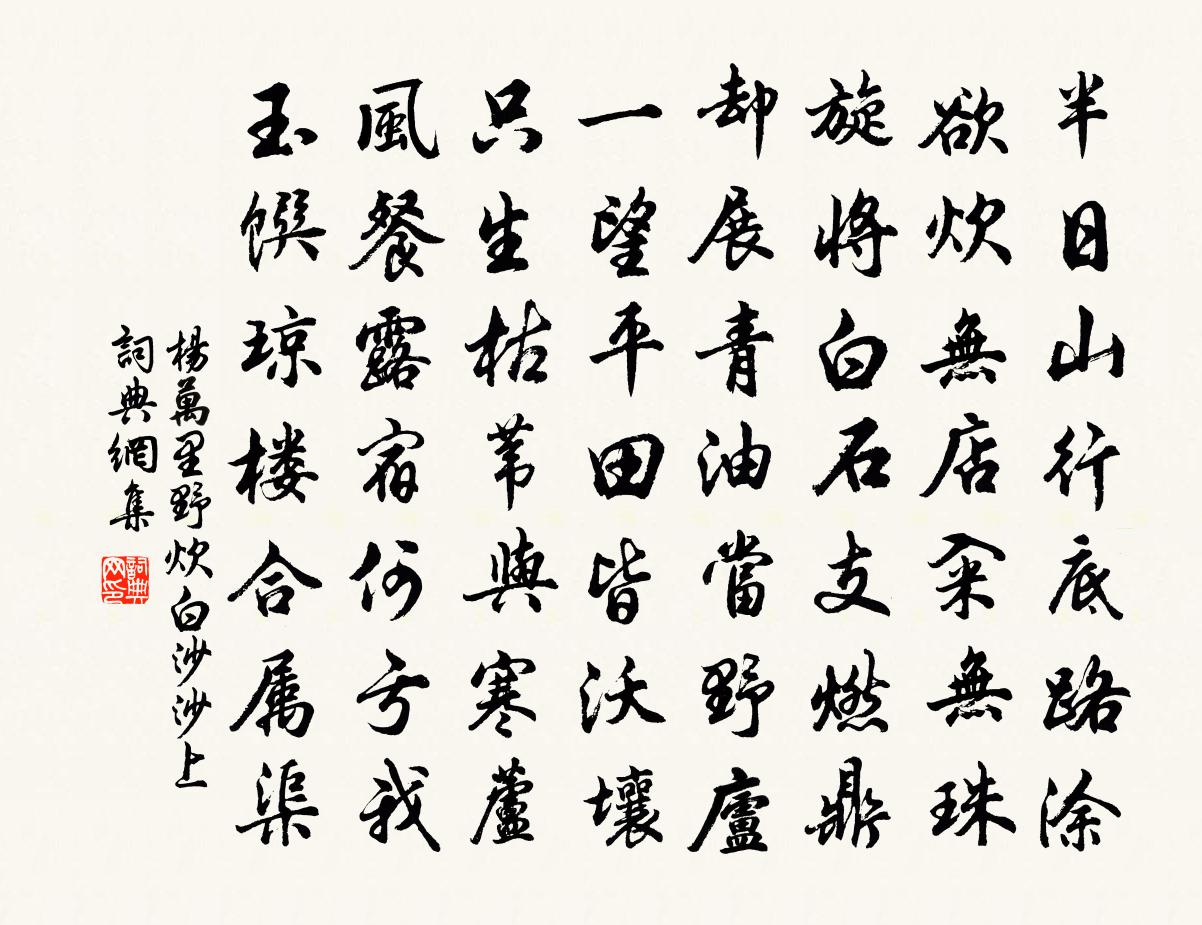 半日山行底路涂
欲炊無店籴無珠
旋將白石支燃鼎
却展青油當野廬
一望平田皆沃壤
只生枯苇與寒蘆
風餐露宿何亏我
玉馔琼楼合属渠
楊萬里野炊白沙沙上
詞典網集
詞典
网印